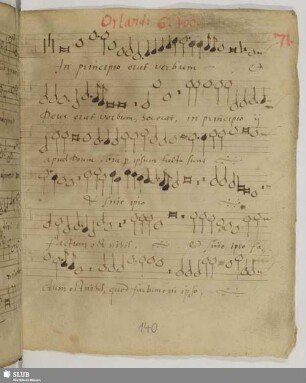 Orlandi 6. voc.
76
In principio erat verbum
Deus erat verbum, hoc erat, in principio ij
apud Deum, per ipsum facta sunt
& sine ipso
factum est nihil, & sine ipso fa,
ctum est nihil, quod factum in ipso,
140
SLUB